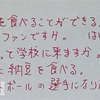 を食べることができる
ファンですか。 は
して学校に来ますか。
に納豆を食べる。
ボールの選手になり